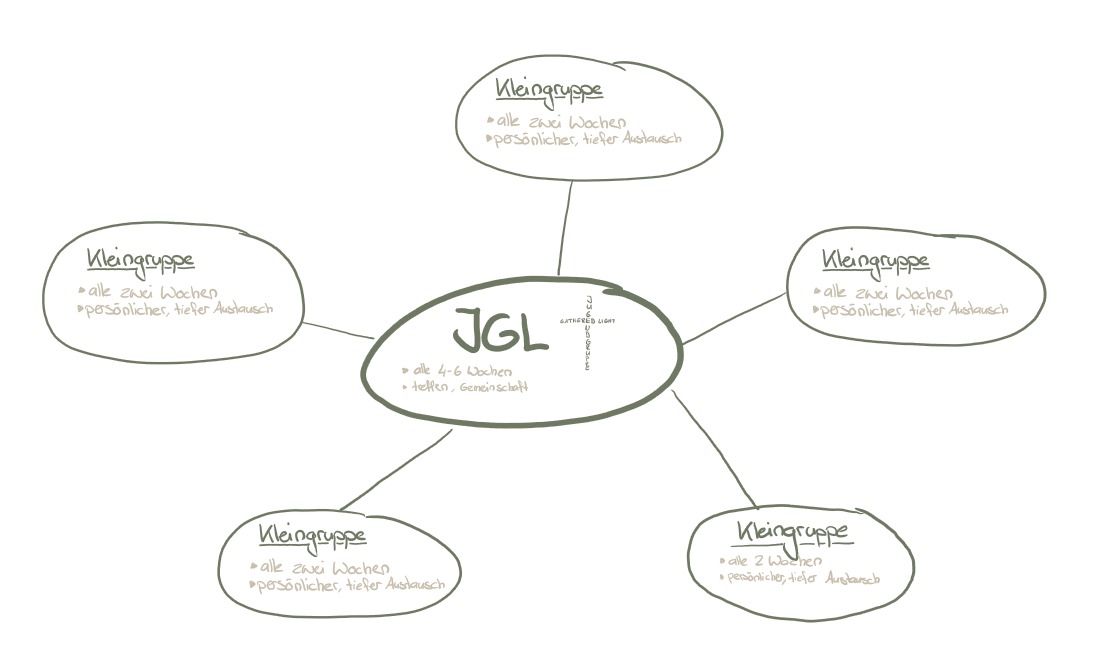 Kleingruppe
alle zwei Wochen
persönlicher, tiefer Austausch
Kleingruppe
alle zwei Wochen
persönlicher, tiefer Austausch
Kleingruppe
alle zwei Wochen
persönlicher, tiefer Austausch
JGL
JUGENDGRUPPE
GATHERED LIGHT
alle 4-6 Wochen
treffen, Gemeinschaft
Kleingruppe
alle zwei Wochen
persönlicher, tiefer Austausch
Kleingruppe
alle 2 Wochen
persönlicher, tiefer Austausch